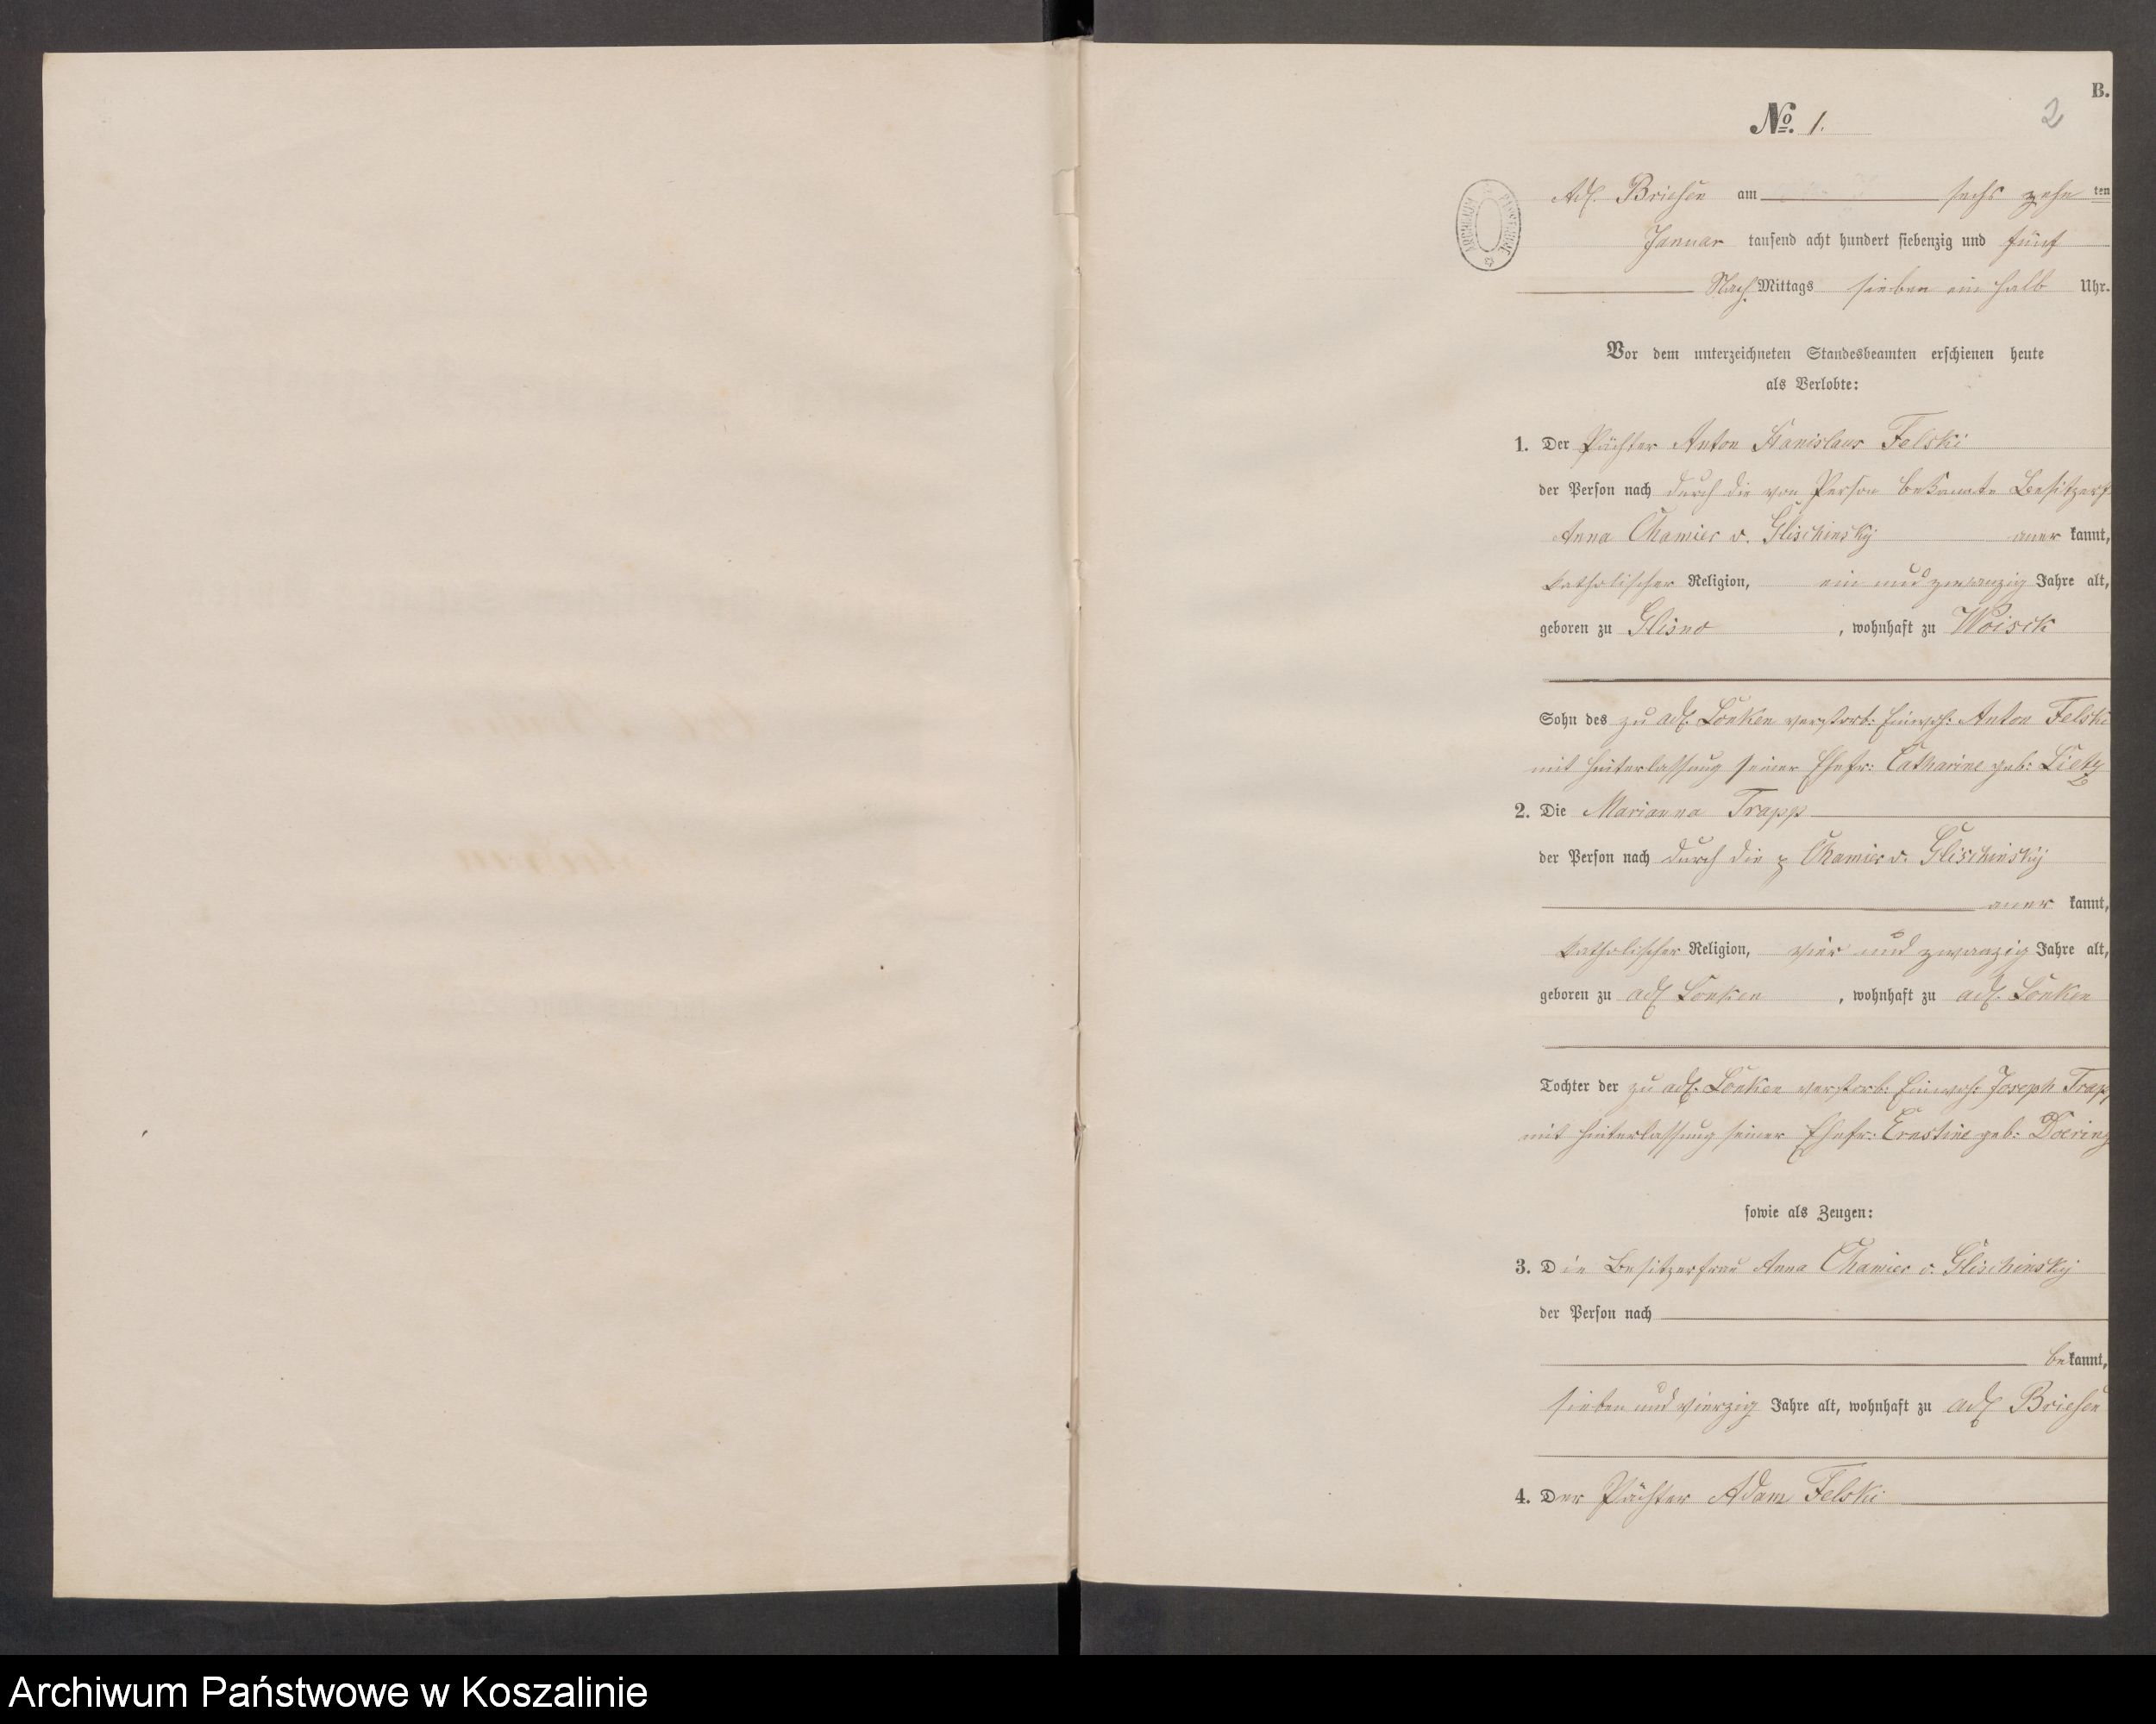 B.
2
No. 1.
Adl. Briesen am sechszehn ten
Januar tausend acht hundert siebenzig und fünf
Nach Mittags sieben ein halb Uhr.
Vor dem unterzeichneten Standesbeamten erschienen heute
als Verlobte:
1. Der Pächter Anton Stanislaus Felski
der Person nach durch die von Person bekannte Besitzerfr
Anna Chamier v. Glischinsky aner kannt,
katholischer Religion, ein und zwanzig Jahre alt,
geboren zu Glisno , wohnhaft zu Woisk
Sohn des zu adl. Lonken verstorb: Einwoh: Anton Felski
mit Hinterlassung seiner Ehefr: Catharine geb: Lietz
2. Die Marianna Trapp
der Person nach durch die p Chamier v. Glischinsky
aner kannt,
katholischer Religion, vier und zwanzig Jahre alt,
geboren zu adl. Lonken , wohnhaft zu adl. Lonken
Tochter der zu adl. Lonken verstorb: Einwoh: Joseph Trapp
mit Hinterlassung seiner Ehefr: Ernstine geb: Doering
sowie als Zeugen:
3. Die Besitzerfrau Anna Chamier v. Glischinsky
der Person nach
bekannt,
sieben und vierzig Jahre alt, wohnhaft zu adl. Briesen
4. Der Pächter Adam Felski
Archiwum Państwowe w Koszalinie